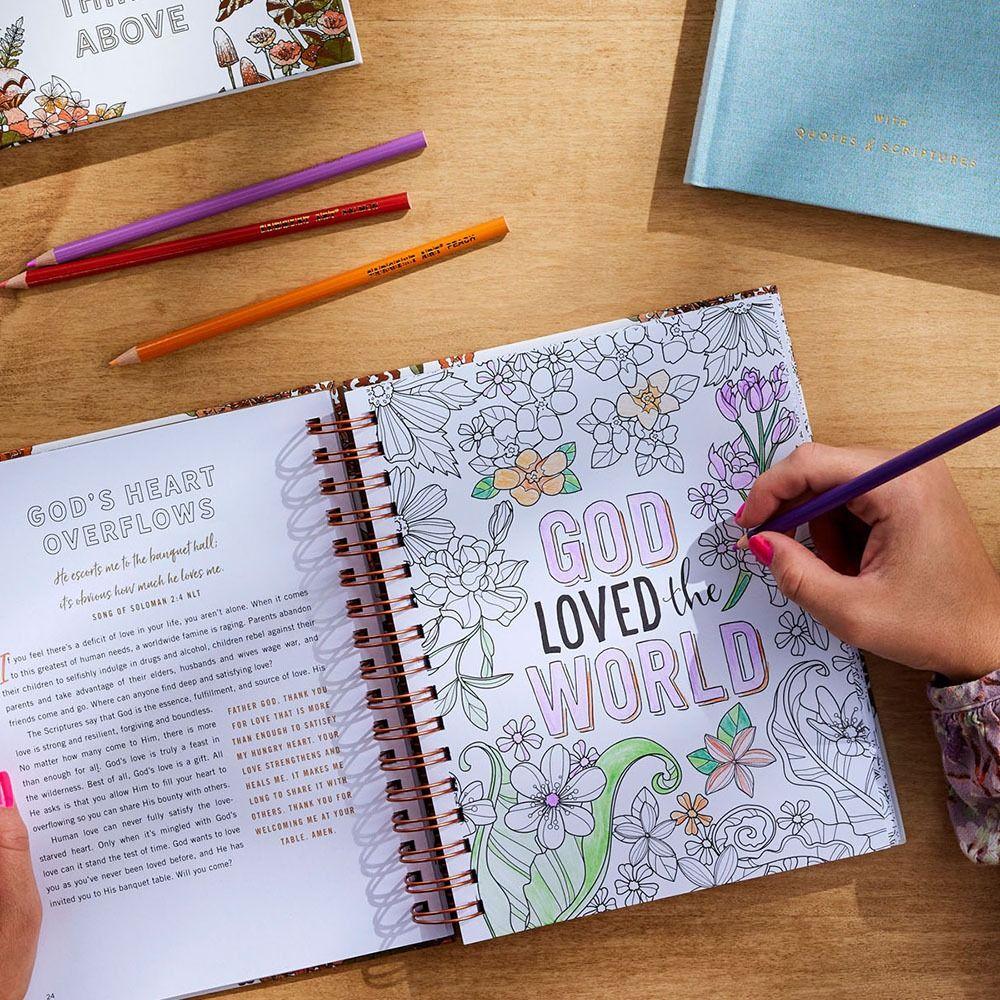 ABOVE
WITH
QUOTES & SCRIPTURES
PEACH
GOD'S HEART
OVERFLOWS
He escorts me to the banquet hall;
it's obvious how much he loves me.
SONG OF SOLOMAN 2:4 NLT
If you feel there's a deficit of love in your life, you aren't alone. When it comes
to this greatest of human needs, a worldwide famine is raging. Parents abandon
their children to selfishly indulge in drugs and alcohol, children rebel against their
parents and take advantage of their elders, husbands and wives wage war, and
friends come and go. Where can anyone find deep and satisfying love?
The Scriptures say that God is the essence, fulfillment, and source of love. His
love is strong and resilient, forgiving and boundless.
No matter how many come to Him, there is more
than enough for all. God's love is truly a feast in
the wilderness. Best of all, God's love is a gift. All
He asks is that you allow Him to fill your heart to
overflowing so you can share His bounty with others.
Human love can never fully satisfy the love-
starved heart. Only when it's mingled with God's
love can it stand the test of time. God wants to love
you as you've never been loved before, and He has
invited you to His banquet table. Will you come?
FATHER GOD, THANK YOU
FOR LOVE THAT IS MORE
THAN ENOUGH TO SATISFY
MY HUNGRY HEART. YOUR
LOVE STRENGTHENS AND
HEALS ME. IT MAKES ME
LONG TO SHARE IT WITH
OTHERS. THANK YOU FOR
WELCOMING ME AT YOUR
TABLE. AMEN.
24
GOD
LOVED the
WORLD